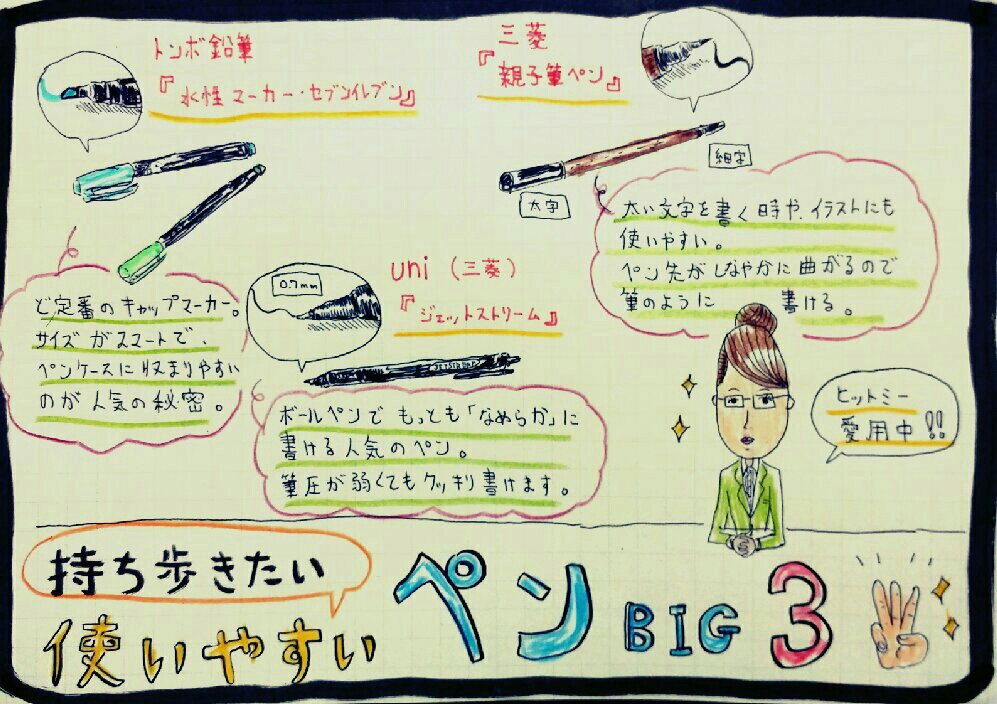 トンボ鉛筆
『水性マーカー・セブンイレブン』
ど定番のキャップマーカー。
サイズがスマートで、
ペンケースに収まりやすい
のが人気の秘密。
三菱
『親子筆ペン』
細字
太字
太い文字を書く時や、イラストにも
使いやすい。
ペン先がしなやかに曲がるので
筆のように 書ける。
0.7mm
uni (三菱)
『ジェットストリーム』
ボールペンでもっとも「なめらか」に
書ける人気のペン。
筆圧が弱くてもクッキリ書けます。
ヒットミー
愛用中!!
持ち歩きたい
使いやすい ペン BIG 3